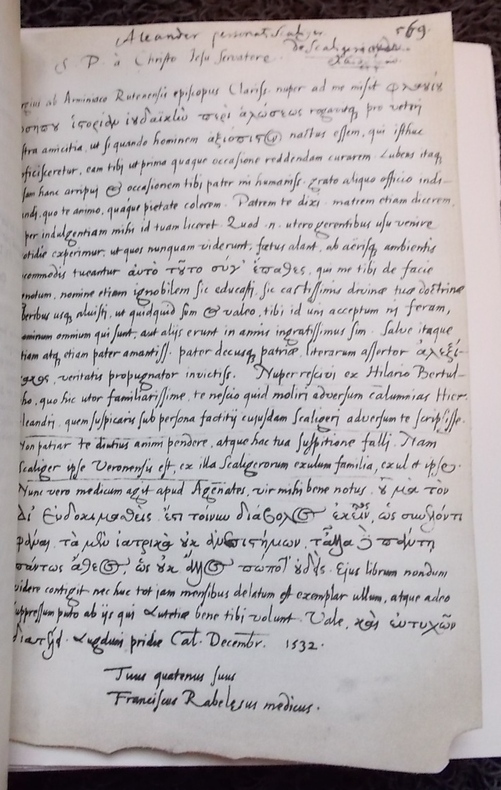 Aleander personatus Scaliger. 569.
S. P. a Christo Jesu Servatore. de Scaligero
gius ab Arminiaco Rutenensis episcopus clariss. nuper ad me misit Φλαυίυ
ἱστορίαν ἰυδαικὴν περὶ ἁλώσεως rogavitq, pro veteri
stra amicitia, ut si quando hominem ἀξιόπιστον nactus essem, qui isthuc
oficisceretur, eam tibi ut prima quaque occasione reddendam curarem. Lubens itaq
sam hanc arripui & occasionem tibi pater mi humaniss. grato aliquo officio indi-
andi, quo te animo, quaque pietate colerem. Patrem te dixi. matrem etiam dicerem,
per indulgentiam mihi id tuam liceret. Quod .n. utero gerentibus usu venire
otidie experimur, ut quos nunquam viderunt, fœtus alant, ab aërisq ambientis
commodis tueantur αὐτὸ τῦτο σύγ' ἔπαθες, qui me tibi de facie
notum, nomine etiam ignobilem sic educasti, sic castissimis divinæ tuæ doctrinæ
beribus usq aluisti, ut quidquid sum & valeo, tibi id uni acceptum ni feram,
ominum omnium qui sunt, aut alijs erunt in annis ingratissimus sim. Salve itaque
tiam atq etiam pater amantiss. pater decusq patriæ, literarum assertor ἀλεξί-
κακος, veritatis propugnator invictiss. Nuper rescivi ex Hilario Bertul-
ho, quo hic utor familiarissime, te nescio quid moliri adversum calumnias Hier.
leandri, quem suspicaris sub persona factitij cujusdam Scaligeri adversum te scripsisse.
Non patiar te diutius animi pendere, atque hac tua suspitione falli. Nam
Scaliger ipse Veronensis est, ex illa Scaligerorum exulum familia, exul et ipse.
Nunc vero medicum agit apud Agennates, vir mihi bene notus, ὐ μὰ τὸν
Δί' εὐδοκιμαθεὶς. ἔστι τοίνυν διάβολος ἐκεῖνος, ὡς συνελόντι
φάναι, τὰ μὲν ἰατρικὰ ὐκ ἀνεπιστήμων, τἆλλα δὲ πάντη
πάντως ἄθεος, ὡς ὐκ ἄλλος πώποτ' ὐδείς. Ejus librum nondum
videre contigit nec huc tot jam mensibus delatum est exemplar ullum, atque adeo
suppressum puto ab ijs qui Lutetiæ bene tibi volunt. Vale, καὶ εὐτυχῶν
διατέλει. Lugduni pridie Cal. Decembr. 1532.
Tuus quatenus suus
Franciscus Rabelæsus medicus.